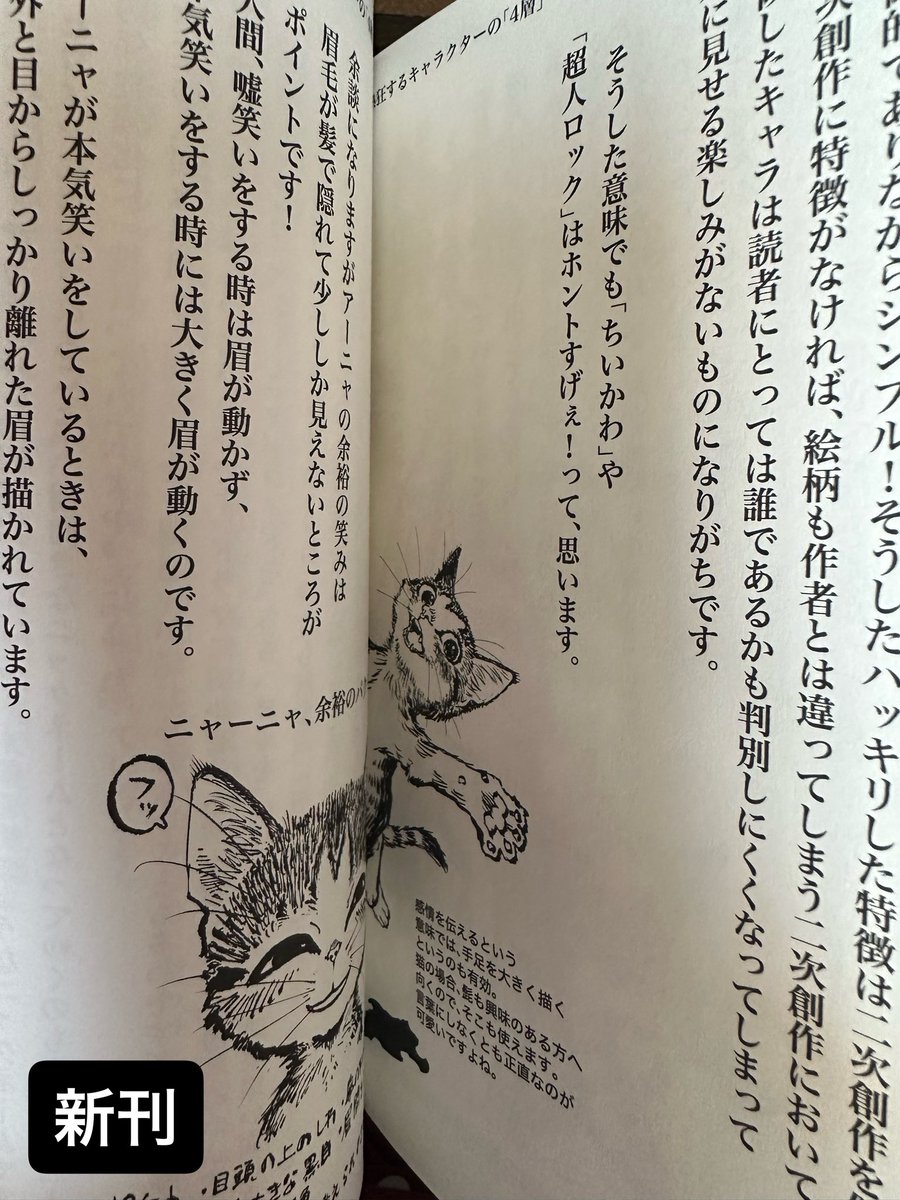 的でありながらシンプル！そうしたハッキリした特徴は二次創作を
次創作に特徴がなければ、絵柄も作者とは違ってしまう二次創作において
したキャラは読者にとっては誰であるかも判別しにくくなってしまって
に見せる楽しみがないものになりがちです。
そうした意味でも「ちいかわ」や
「超人ロック」はホントすげぇ！って、思います。
するキャラクターの「4層」
感情を伝えるという
意味では、手足を大きく描く
というのも有効。
猫の場合、髭も興味のある方へ
向くので、そこも使えます。
言葉にしなくとも正直なのが
可愛いですよね。
余談になりますがアーニャの余裕の笑みは
眉毛が髪で隠れて少ししか見えないところが
ポイントです！
人間、嘘笑いをする時は眉が動かず、
気笑いをする時には大きく眉が動くのです。
ーニャが本気笑いをしているときは、
外と目からしっかり離れた眉が描かれています。
ニャーニャ、余裕の
フッ
・目頭の上のしわ
新刊